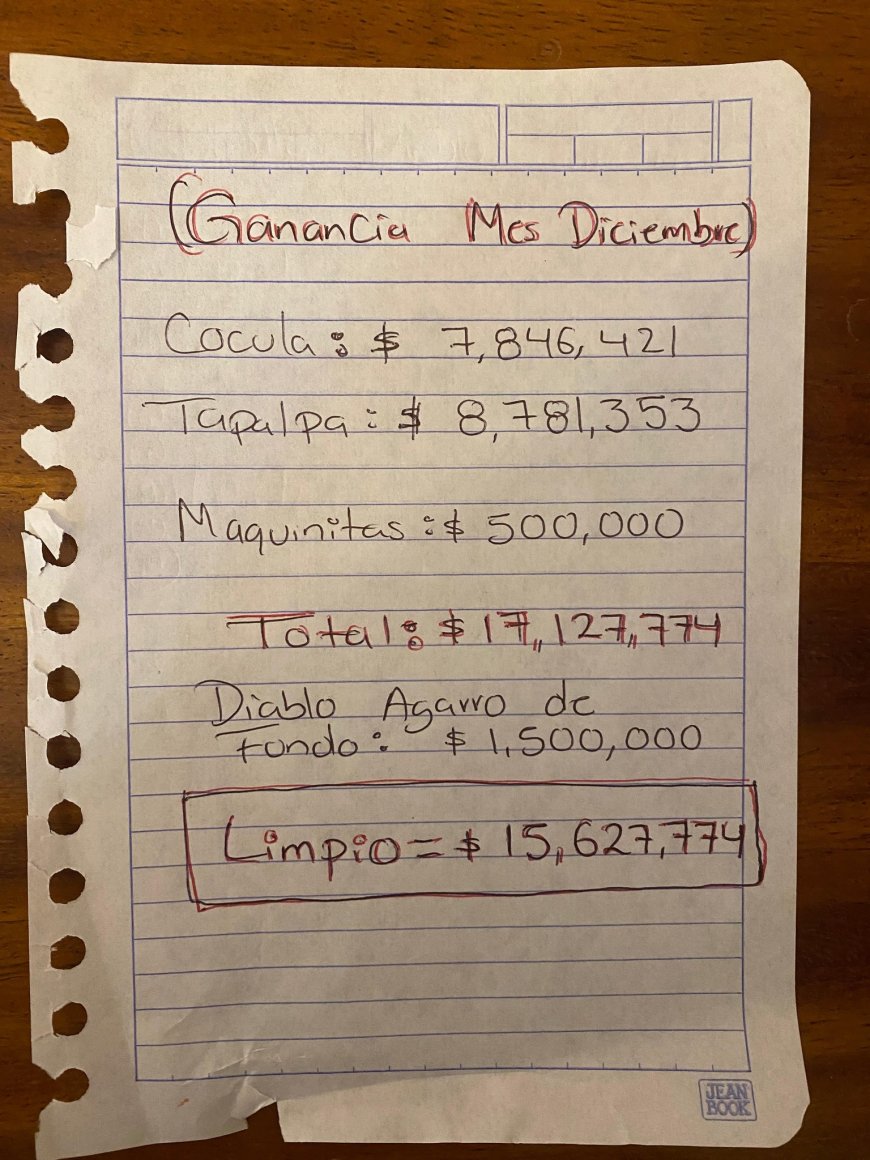 (Ganancia Mes Diciembre)
Cocula: $ 7,846,421
Tapalpa: $ 8,781,353
Maquinitas: $ 500,000
Total: $ 17,127,774
Diablo Agarro de
Fondo: $ 1,500,000
Limpio = $ 15,627,774
JEAN
BOOK